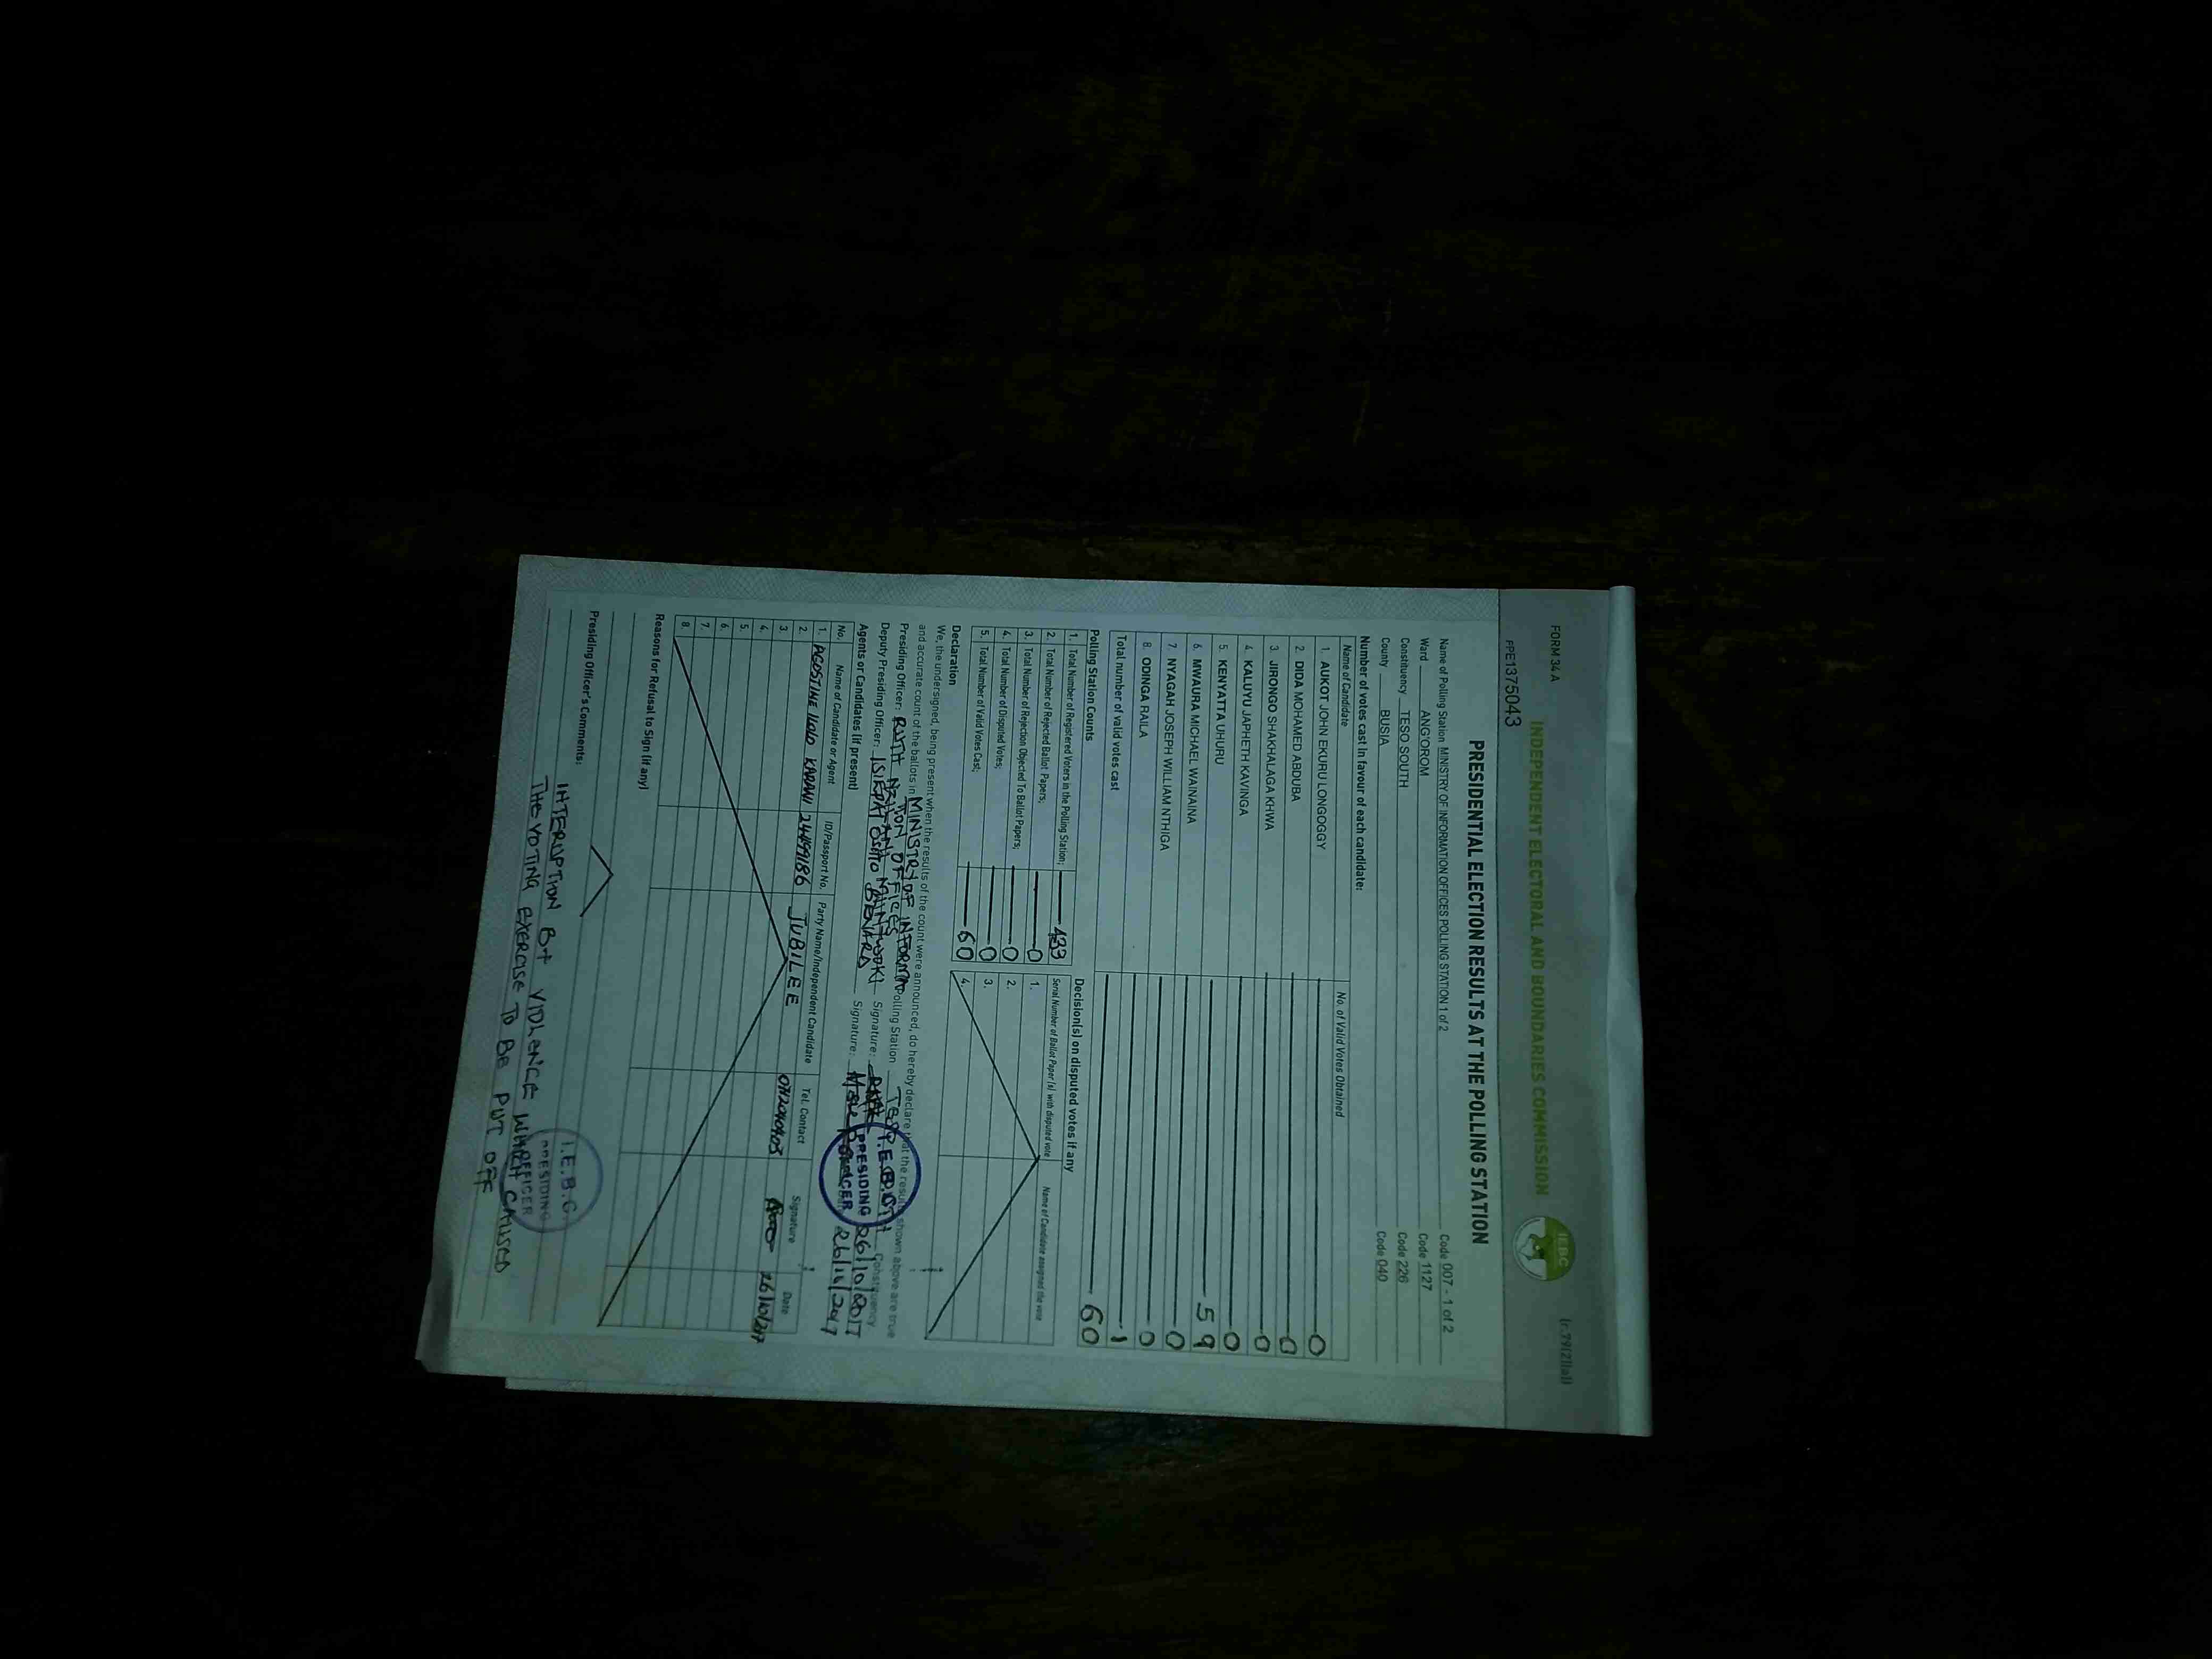 FORM 34 A
(r.79(2)(a))
INDEPENDENT ELECTORAL AND BOUNDARIES COMMISSION
IEBC
PPE1375043
PRESIDENTIAL ELECTION RESULTS AT THE POLLING STATION
Name of Polling Station MINISTRY OF INFORMATION OFFICES POLLING STATION 1 of 2 Code 007 - 1 of 2
Ward ANG'OROM Code 1127
Constituency TESO SOUTH Code 226
County BUSIA Code 040
Number of votes cast in favour of each candidate:
Name of Candidate No. of Valid Votes Obtained
1. AUKOT JOHN EKURU LONGOGGY 0
2. DIDA MOHAMED ABDUBA 0
3. JIRONGO SHAKHALAGA KHWA 0
4. KALUYU JAPHETH KAVINGA 0
5. KENYATTA UHURU 59
6. MWAURA MICHAEL WAINAINA 0
7. NYAGAH JOSEPH WILLIAM NTHIGA 0
8. ODINGA RAILA 1
Total number of valid votes cast 60
Polling Station Counts
1. Total Number of Registered Voters in the Polling Station; 433
2. Total Number of Rejected Ballot Papers; 0
3. Total Number of Rejection Objected To Ballot Papers; 0
4. Total Number of Disputed Votes; 0
5. Total Number of Valid Votes Cast; 60
Decision(s) on disputed votes if any
Serial Number of Ballot Paper(s) with disputed vote Name of Candidate assigned the vote
1.
2.
3.
4.
Declaration
We, the undersigned, being present when the results of the count were announced, do hereby declare that the results shown above are true
and accurate count of the ballots in MINISTRY OF INFORMATION OFFICES Polling Station Constituency
Presiding Officer: RUTH Signature: 26/10/2017
Deputy Presiding Officer: Signature: 26/10/2017
I.E.B.C.
PRESIDING
OFFICER
Agents or Candidates (if present)
No. Name of Candidate or Agent ID/Passport No. Party Name/Independent Candidate Tel. Contact Signature Date
1. AGOSTINE KADANI JUBILEE 26/10/2017
2.
3.
4.
5.
6.
7.
8.
Reasons for Refusal to Sign (if any)
Presiding Officer's Comments:
INTERRUPTION BY VIOLENCE WHICH CAUSED
THE VOTING EXERCISE TO BE PUT OFF
I.E.B.C.
PRESIDING
OFFICER